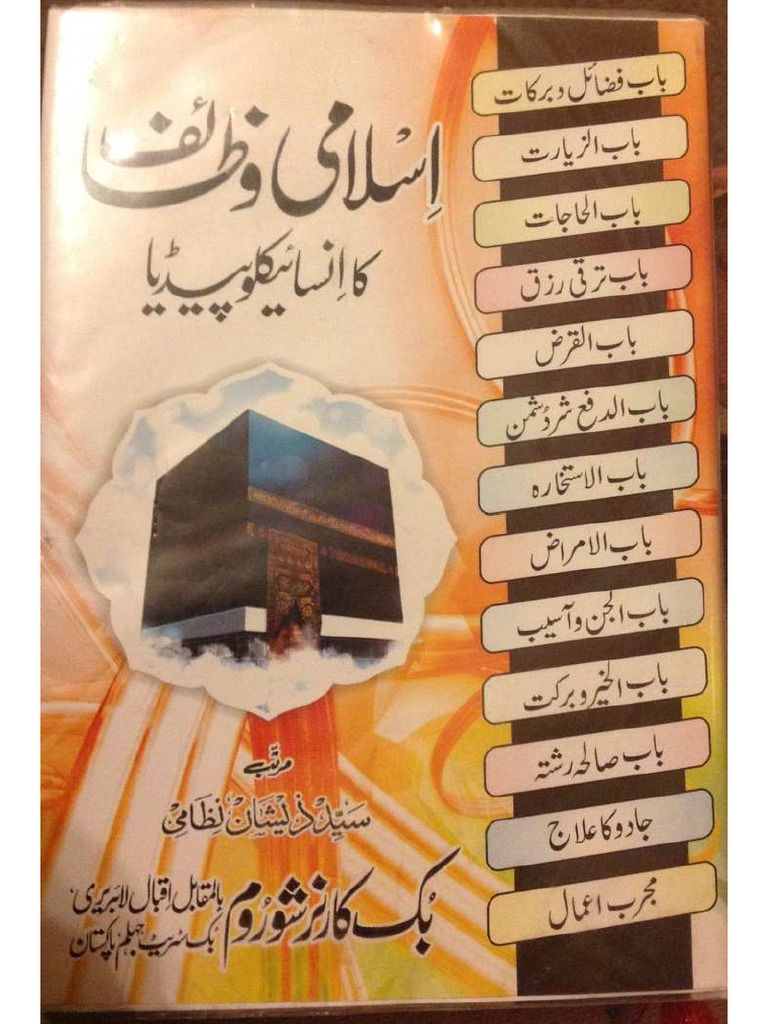 اسلامی وظائف
کا انسائیکلوپیڈیا
مرتب
سید ذیشان نظامی
بک کارنر شوروم بالمقابل اقبال لائبریری،
بک سٹریٹ جہلم پاکستان
باب فضائل و برکات
باب الزیارت
باب الحاجات
باب ترقی رزق
باب القرض
باب الدفع شر دشمن
باب الاستخارہ
باب الامراض
باب الجن و آسیب
باب الخیر و برکت
باب صالحہ رشتہ
جادو کا علاج
مجرب اعمال